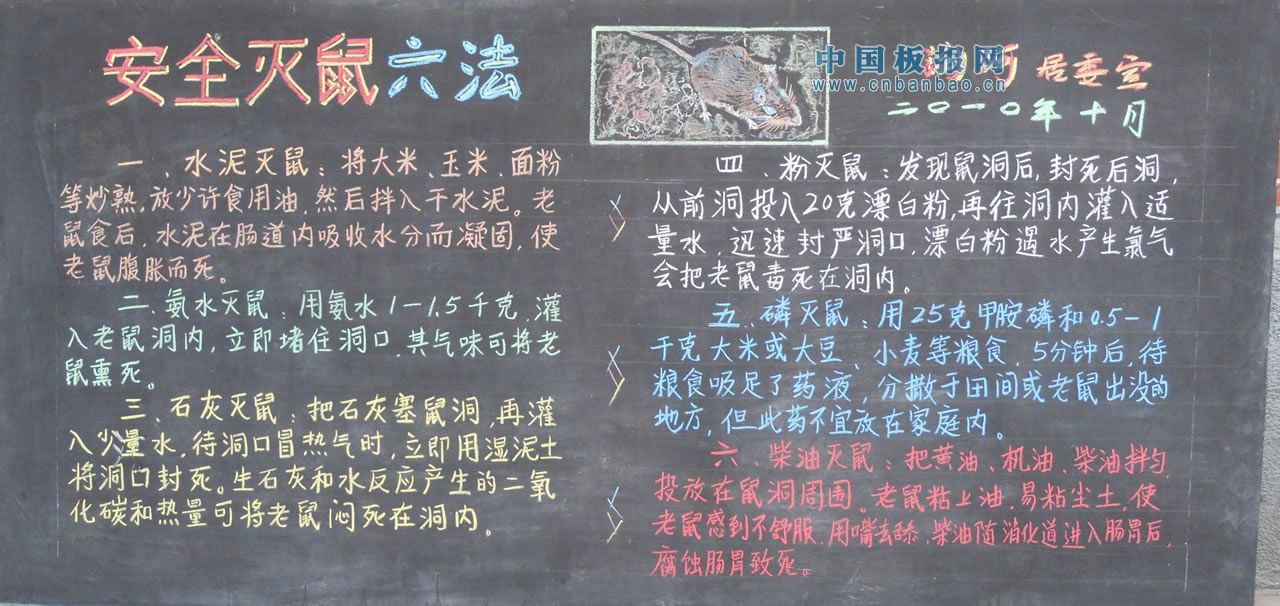 安全灭鼠六法
中国板报网
www.cnbanbao.cn
居委宣
二〇一〇年十月
一、水泥灭鼠：将大米、玉米、面粉
等炒熟，放少许食用油，然后拌入干水泥。老
鼠食后，水泥在肠道内吸收水分而凝固，使
老鼠腹胀而死。
二、氨水灭鼠：用氨水1-1.5千克，灌
入老鼠洞内，立即堵住洞口，其气味可将老
鼠熏死。
三、石灰灭鼠：把石灰塞鼠洞，再灌
入少量水，待洞口冒热气时，立即用湿泥土
将洞口封死。生石灰和水反应产生的二氧
化碳和热量可将老鼠闷死在洞内。
四、粉灭鼠：发现鼠洞后，封死后洞，
从前洞投入20克漂白粉，再往洞内灌入适
量水，迅速封严洞口，漂白粉遇水产生氯气
会把老鼠毒死在洞内。
五、磷灭鼠：用25克甲胺磷和0.5-1
千克大米或大豆、小麦等粮食，5分钟后，待
粮食吸足了药液，分撒于田间或老鼠出没的
地方，但此药不宜放在家庭内。
六、柴油灭鼠：把黄油、机油、柴油拌匀
投放在鼠洞周围。老鼠粘上油，易粘尘土，使
老鼠感到不舒服，用嘴去舔，柴油随消化道进入肠胃后，
腐蚀肠胃致死。